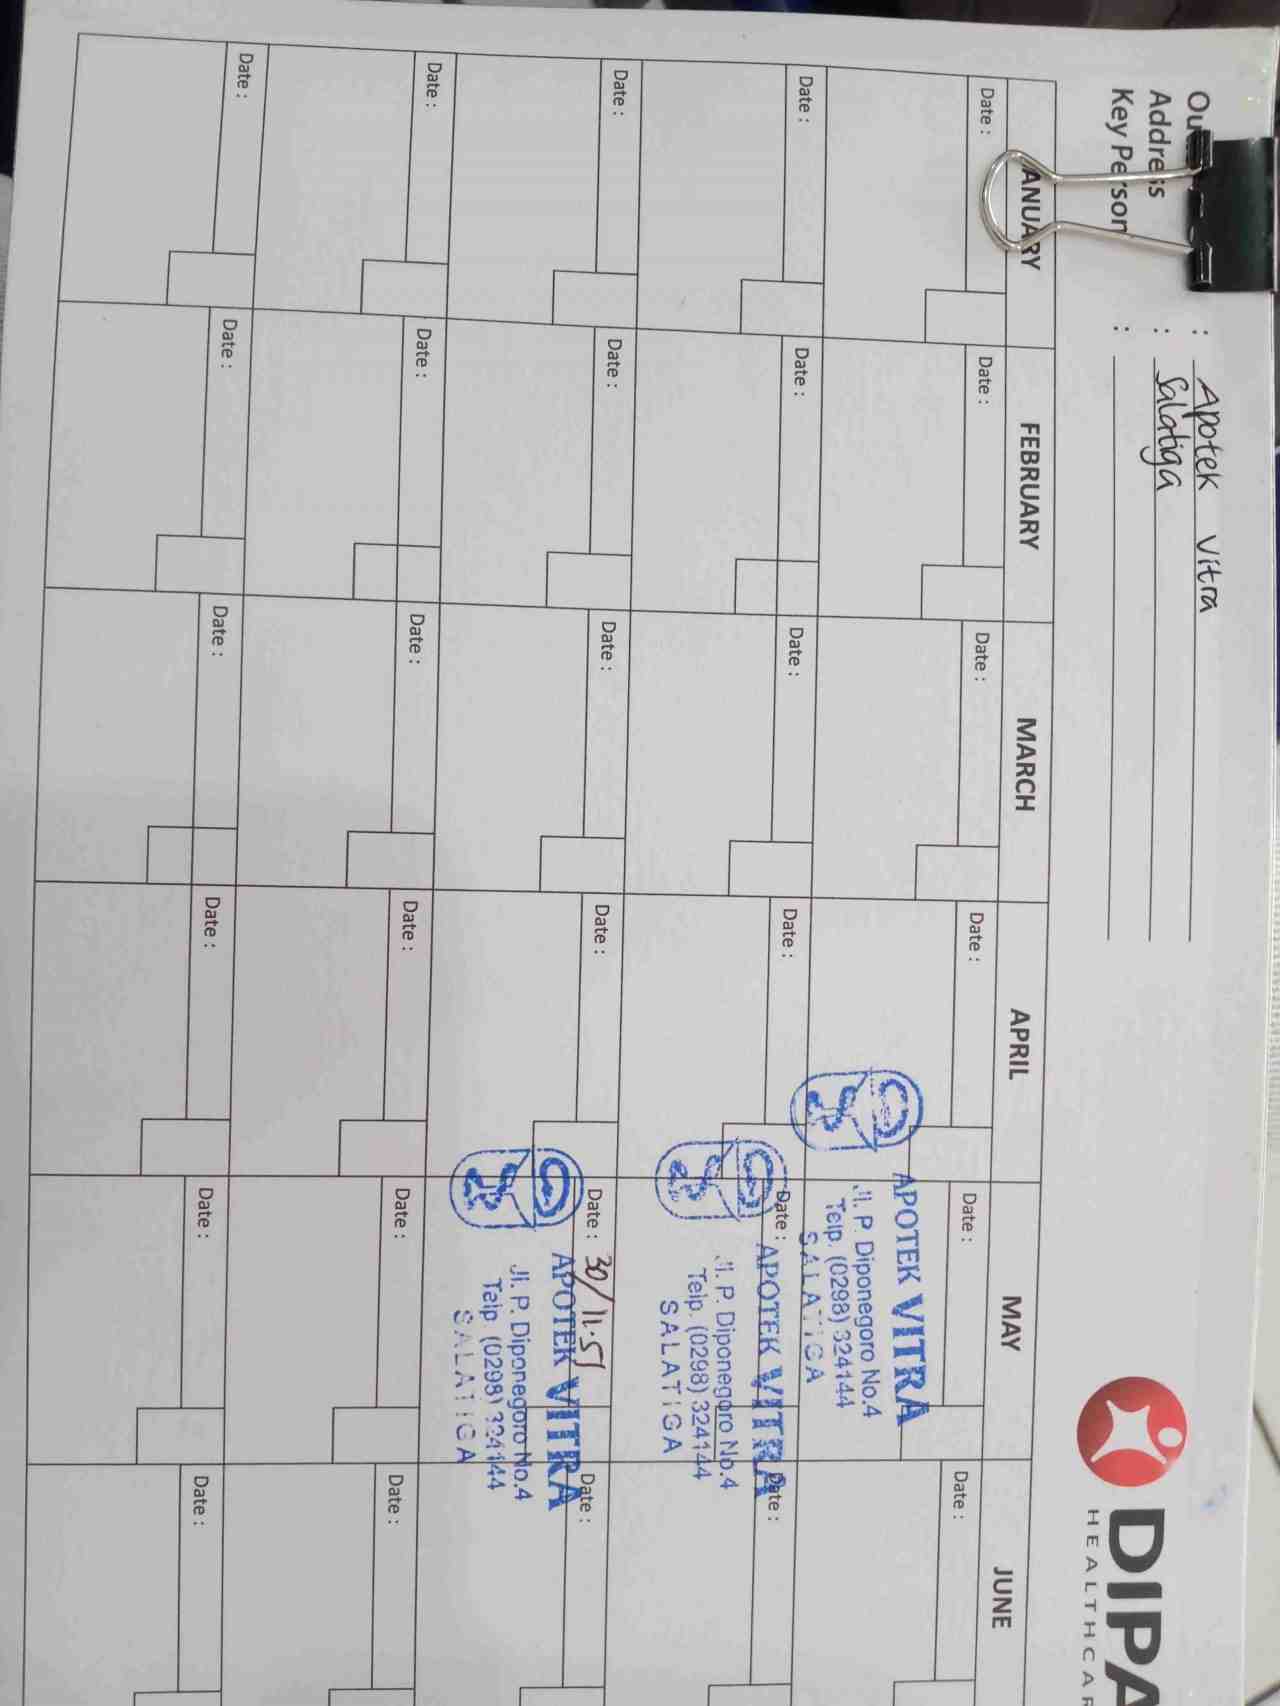 Address : Salatiga
Key Person :
: Apotek Vitra
DIPA
HEALTHCAR
FEBRUARY MARCH APRIL MAY JUNE
Date : Date : Date : Date : Date : Date :
APOTEK VITRA
Jl. P. Diponegoro No.4
Telp. (0298) 324144
SALATIGA
Date : Date : Date : Date : Date : Date :
APOTEK VITRA
Jl. P. Diponegoro No.4
Telp. (0298) 324144
SALATIGA
Date : Date : Date : Date : Date : 30/11.51 Date :
APOTEK VITRA
Jl. P. Diponegoro No.4
Telp (0298) 324144
SALATIGA
Date : Date : Date : Date : Date : Date :
Date : Date : Date : Date : Date : Date :